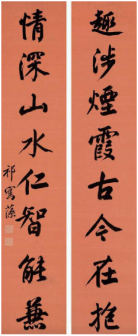 趣涉煙霞古今在抱
情深山水仁智能兼
祁寯藻